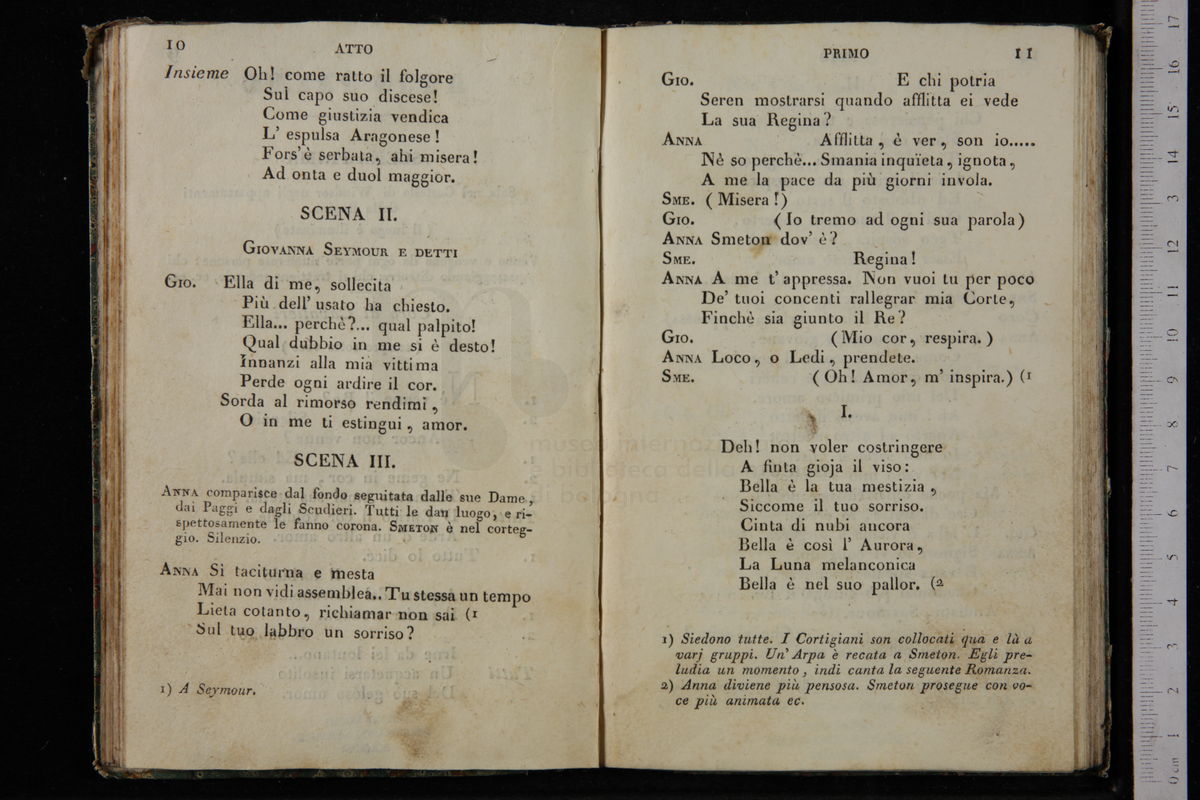 10 ATTO
Insieme Oh! come ratto il folgore
Sul capo suo discese!
Come giustizia vendica
L' espulsa Aragonese!
Fors'è serbata, ahi misera!
Ad onta e duol maggior.
SCENA II.
GIOVANNA SEYMOUR E DETTI
GIO. Ella di me, sollecita
Più dell' usato ha chiesto.
Ella... perchè?... qual palpito!
Qual dubbio in me si è desto!
Innanzi alla mia vittima
Perde ogni ardire il cor.
Sorda al rimorso rendimi,
O in me ti estingui, amor.
SCENA III.
ANNA comparisce dal fondo seguitata dalle sue Dame,
dai Paggi e dagli Scudieri. Tutti le dan luogo, e ri-
spettosamente le fanno corona. SMETON è nel corteg-
gio. Silenzio.
ANNA Si taciturna e mesta
Mai non vidi assemblea.. Tu stessa un tempo
Lieta cotanto, richiamar non sai (1
Sul tuo labbro un sorriso?
1) A Seymour.
PRIMO 11
GIO. E chi potria
Seren mostrarsi quando afflitta ei vede
La sua Regina?
ANNA Afflitta, è ver, son io.....
Nè so perchè... Smania inquïeta, ignota,
A me la pace da più giorni invola.
SME. (Misera!)
GIO. (Io tremo ad ogni sua parola)
ANNA Smeton dov' è?
SME. Regina!
ANNA A me t' appressa. Non vuoi tu per poco
De' tuoi concenti rallegrar mia Corte,
Finchè sia giunto il Re?
GIO. (Mio cor, respira.)
ANNA Loco, o Ledi, prendete.
SME. (Oh! Amor, m' inspira.) (1
I.
Deh! non voler costringere
A finta gioja il viso:
Bella è la tua mestizia,
Siccome il tuo sorriso.
Cinta di nubi ancora
Bella è così l' Aurora,
La Luna melanconica
Bella è nel suo pallor. (2
1) Siedono tutte. I Cortigiani son collocati qua e là a
varj gruppi. Un' Arpa è recata a Smeton. Egli pre-
ludia un momento, indi canta la seguente Romanza.
2) Anna diviene più pensosa. Smeton prosegue con vo-
ce più animata ec.